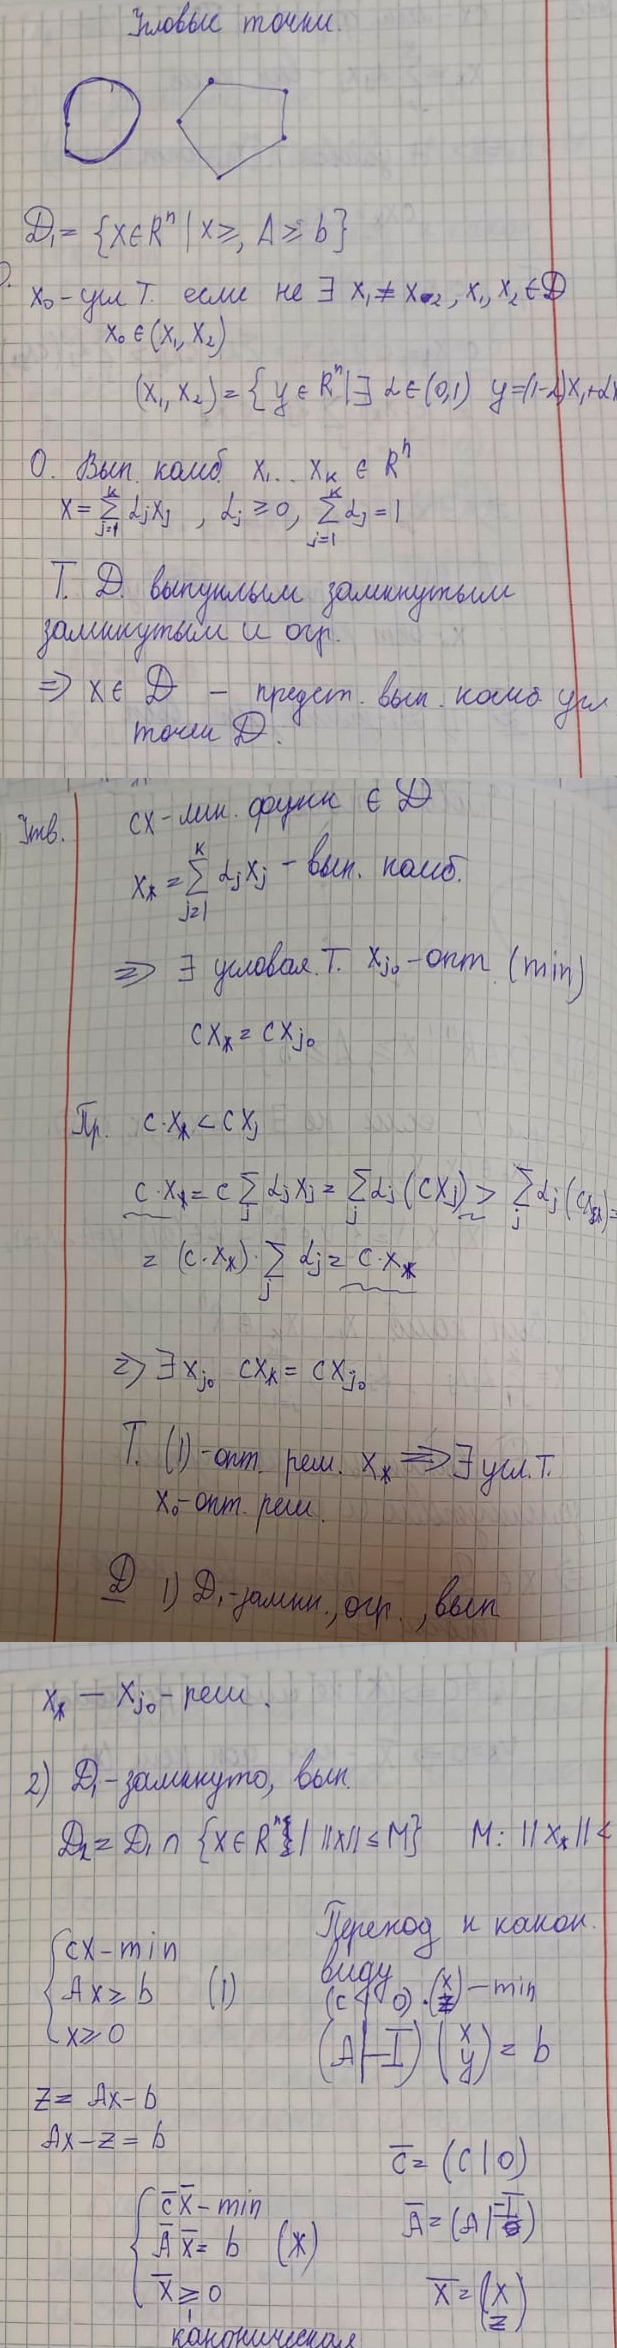 Угловые точки.
D₁ = {x∈Rⁿ | x≥, A ≥ b}
x₀ - угл Т. если не ∃ x₁ ≠ x₂, x₁, x₂ ∈ D
x₀ ∈ (x₁, x₂)
(x₁, x₂) = { y ∈ Rⁿ | ∃ α ∈ (0,1) y = (1-α)x₁ + αx
О. Вып. комб. x₁... xₖ ∈ Rⁿ
x = ∑_{j=1}^{k} αⱼxⱼ , αⱼ ≥ 0, ∑_{j=1}^{k} αⱼ = 1
Т. D. выпуклым замкнутым
замкнутым и огр.
⇒ x ∈ D - предст. вып. комб угл
точки D.
Утв. cx - лин. функ ∈ D
x* = ∑_{j=1}^{k} αⱼxⱼ - вып. комб.
⇒ ∃ угловая. Т. xⱼ₀ - опт. (min)
cx* = cxⱼ₀
Пр. c·x* < cxⱼ
c·x* = c ∑_j αⱼxⱼ = ∑_j αⱼ(cxⱼ) > ∑_j αⱼ(cx*) =
= (c·x*)·∑_j αⱼ = c·x*
⇒ ∃ xⱼ₀ cx* = cxⱼ₀
Т. (1) - опт. реш. x* ⇒ ∃ угл. Т.
x₀ - опт. реш.
Д 1) D₁ - замкн., огр., вып
x* — xⱼ₀ - реш.
2) D₁ - замкнуто, вып.
D₂ = D₁ ∩ {x∈Rⁿ | ||x|| ≤ M} M: ||x*|| <
Переход к канон.
виду
{ cx - min
Ax ≥ b (1)
x ≥ 0
(c | 0)·(x z) - min
(A|-I) (x y) = b
z = Ax - b
Ax - z = b
c̄ = (c | 0)
Ā = (A | -I)
x̄ = (x z)
{ c̄x̄ - min
Āx̄ = b (*)
x̄ ≥ 0
каноническая